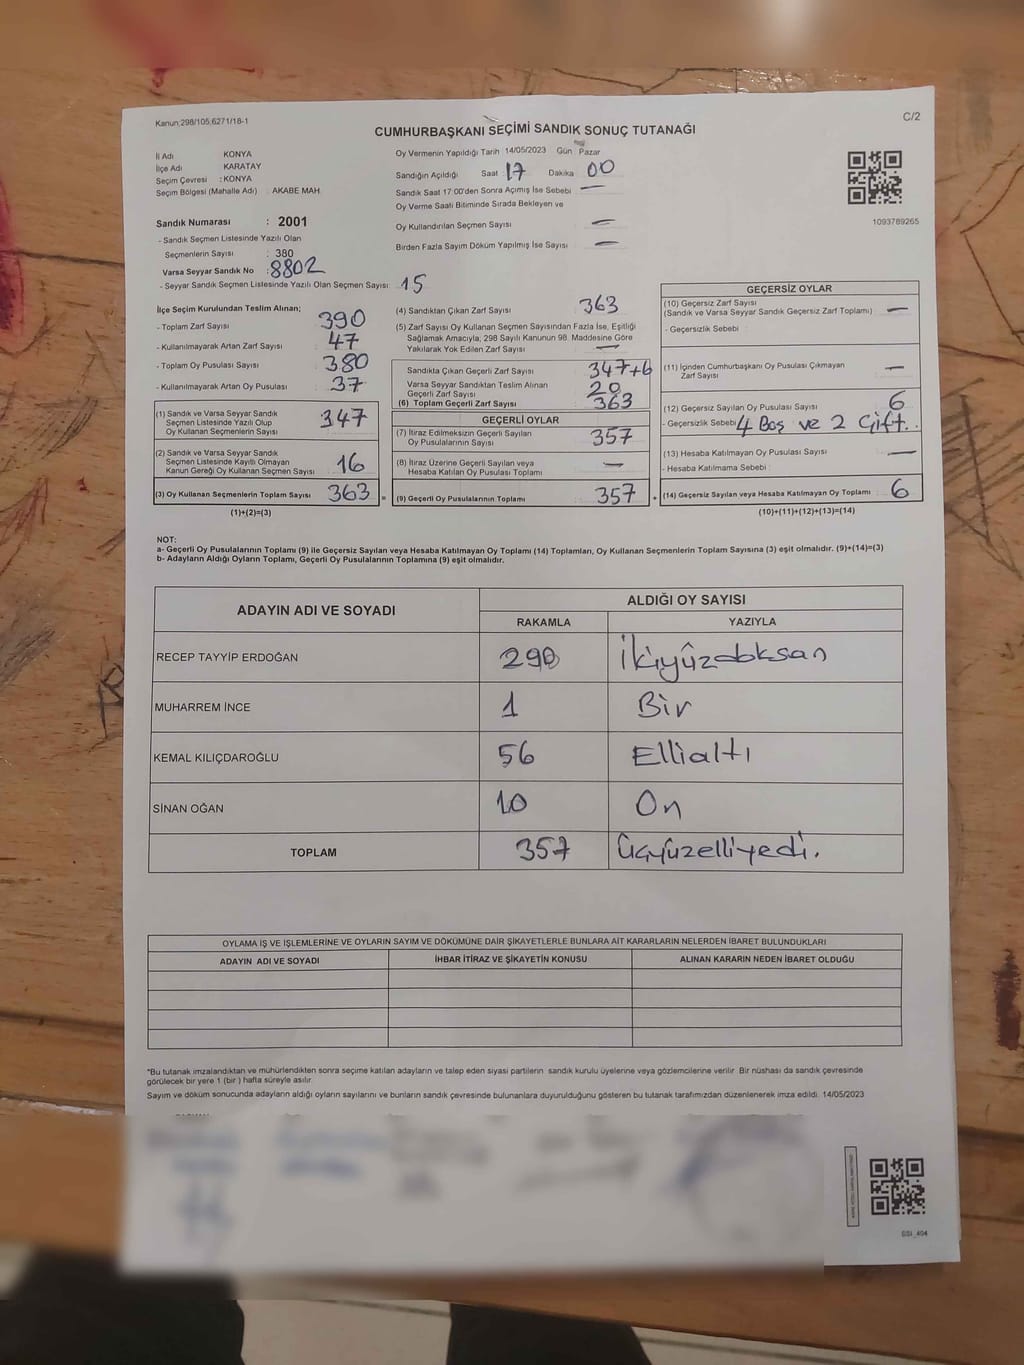 Kanun;298/105,6271/18-1
C/2
CUMHURBAŞKANI SEÇİMİ SANDIK SONUÇ TUTANAĞI
İl Adı KONYA
İlçe Adı KARATAY
Seçim Çevresi : KONYA
Seçim Bölgesi (Mahalle Adı) : AKABE MAH.
Sandık Numarası : 2001
- Sandık Seçmen Listesinde Yazılı Olan
Seçmenlerin Sayısı : 380
Varsa Seyyar Sandık No : 8802
- Seyyar Sandık Seçmen Listesinde Yazılı Olan Seçmen Sayısı: 15
Oy Vermenin Yapıldığı Tarih 14/05/2023 Gün Pazar
Sandığın Açıldığı Saat : 17 Dakika : 00
Sandık Saat 17:00'den Sonra Açımış İse Sebebi : —
Oy Verme Saati Bitiminde Sırada Bekleyen ve
Oy Kullandırılan Seçmen Sayısı : —
Birden Fazla Sayım Döküm Yapılmış İse Sayısı : —
1093789265
İlçe Seçim Kurulundan Teslim Alınan;
- Toplam Zarf Sayısı : 390
- Kullanılmayarak Artan Zarf Sayısı : 47
- Toplam Oy Pusulası Sayısı : 380
- Kullanılmayarak Artan Oy Pusulası : 37
(1) Sandık ve Varsa Seyyar Sandık
Seçmen Listesinde Yazılı Olup
Oy Kullanan Seçmenlerin Sayısı : 347
(2) Sandık ve Varsa Seyyar Sandık
Seçmen Listesinde Kayıtlı Olmayan
Kanun Gereği Oy Kullanan Seçmen Sayısı : 16
(3) Oy Kullanan Seçmenlerin Toplam Sayısı : 363 =
(1)+(2)=(3)
(4) Sandıktan Çıkan Zarf Sayısı : 363
(5) Zarf Sayısı Oy Kullanan Seçmen Sayısından Fazla İse, Eşitliği
Sağlamak Amacıyla; 298 Sayılı Kanunun 98. Maddesine Göre
Yakılarak Yok Edilen Zarf Sayısı : —
Sandıkta Çıkan Geçerli Zarf Sayısı : 347+6
Varsa Seyyar Sandıktan Teslim Alınan
Geçerli Zarf Sayısı : 20
(6) Toplam Geçerli Zarf Sayısı : 363
GEÇERLİ OYLAR
(7) İtiraz Edilmeksizin Geçerli Sayılan
Oy Pusulalarının Sayısı : 357
(8) İtiraz Üzerine Geçerli Sayılan veya
Hesaba Katılan Oy Pusulası Toplamı : —
(9) Geçerli Oy Pusulalarının Toplamı : 357 +
GEÇERSİZ OYLAR
(10) Geçersiz Zarf Sayısı
(Sandık ve Varsa Seyyar Sandık Geçersiz Zarf Toplamı) : —
- Geçersizlik Sebebi :
(11) İçinden Cumhurbaşkanı Oy Pusulası Çıkmayan
Zarf Sayısı : —
(12) Geçersiz Sayılan Oy Pusulası Sayısı : 6
- Geçersizlik Sebebi : 4 Boş ve 2 Çift.
(13) Hesaba Katılmayan Oy Pusulası Sayısı : —
- Hesaba Katılmama Sebebi :
(14) Geçersiz Sayılan veya Hesaba Katılmayan Oy Toplamı : 6
(10)+(11)+(12)+(13)=(14)
NOT:
a- Geçerli Oy Pusulalarının Toplamı (9) ile Geçersiz Sayılan veya Hesaba Katılmayan Oy Toplamı (14) Toplamları, Oy Kullanan Seçmenlerin Toplam Sayısına (3) eşit olmalıdır. (9)+(14)=(3)
b- Adayların Aldığı Oyların Toplamı, Geçerli Oy Pusulalarının Toplamına (9) eşit olmalıdır.
ADAYIN ADI VE SOYADI ALDIĞI OY SAYISI
RAKAMLA YAZIYLA
RECEP TAYYİP ERDOĞAN 290 İkiyüzdoksan
MUHARREM İNCE 1 Bir
KEMAL KILIÇDAROĞLU 56 Ellialtı
SİNAN OĞAN 10 On
TOPLAM 357 Üçyüzelliyedi.
OYLAMA İŞ VE İŞLEMLERİNE VE OYLARIN SAYIM VE DÖKÜMÜNE DAİR ŞİKAYETLERLE BUNLARA AİT KARARLARIN NELERDEN İBARET BULUNDUKLARI
ADAYIN ADI VE SOYADI İHBAR İTİRAZ VE ŞİKAYETİN KONUSU ALINAN KARARIN NEDEN İBARET OLDUĞU
*Bu tutanak imzalandıktan ve mühürlendikten sonra seçime katılan adayların ve talep eden siyasi partilerin sandık kurulu üyelerine veya gözlemcilerine verilir. Bir nüshası da sandık çevresinde
görülecek bir yere 1 (bir) hafta süreyle asılır.
Sayım ve döküm sonucunda adayların aldığı oyların sayılarını ve bunların sandık çevresinde bulunanlara duyurulduğunu gösteren bu tutanak tarafımızdan düzenlenerek imza edildi. 14/05/2023